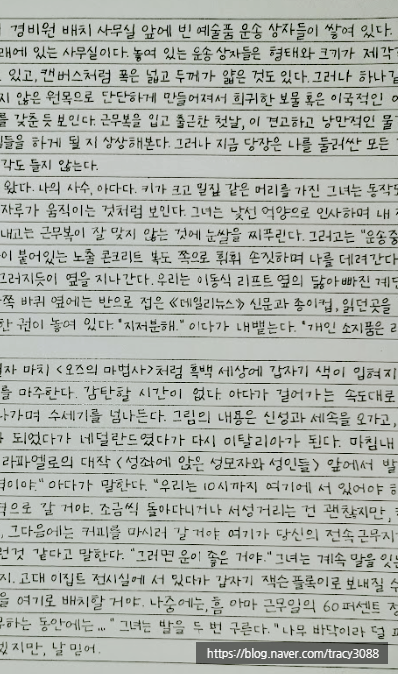 경비원 배치 사무실 앞에 빈 예술품 운송 상자들이 쌓여 있다.
래에 있는 사무실이다. 놓여 있는 운송 상자들은 형태와 크기가 제각
있고, 캔버스처럼 폭은 넓고 두께가 얇은 것도 있다. 그러나 하나같
지 않은 원목으로 단단하게 만들어져서 희귀한 보물 혹은 이국적인
를 갖춘 듯 보인다. 근무복을 입고 출근한 첫날, 이 견고하고 낭만적인 물
들을 하게 될 지 상상해본다. 그러나 지금 당장은 나를 둘러싼 모든
각도 들지 않는다.
왔다. 나의 사수, 아다다. 키가 크고 밀짚 같은 머리를 가진 그녀는 동작
자루가 움직이는 것처럼 보인다. 그녀는 낯선 억양으로 인사하며 내
내고는 근무복이 잘 맞지 않는 것에 눈쌀을 찌푸린다. 그러고는 "운송중
이 붙어있는 노출 콘크리트 복도 쪽으로 휘휘 손짓하며 나를 데려간다.
그러지듯이 옆을 지나간다. 우리는 이동식 리프트 옆의 닳아빠진 계단
쪽 바퀴 옆에는 반으로 접은 《데일리뉴스》 신문과 종이컵, 읽던곳을
한 권이 놓여 있다. "지저분해." 아다가 내뱉는다. "개인 소지품은 라
자 마치 <오즈의 마법사>처럼 흑백 세상에 갑자기 색이 입혀지
를 마주한다. 감탄할 시간이 없다. 아다가 걸어가는 속도대로
나가며 수세기를 넘나든다. 그림의 내용은 신성과 세속을 오가고,
되었다가 네덜란드였다가 다시 이탈리아가 된다. 마침내
라파엘로의 대작 <성좌에 앉은 성모자와 성인들> 앞에서 발
역이야." 아다가 말한다. "우리는 10시까지 여기에 서 있어야 하
역으로 갈 거야. 조금씩 돌아다니거나 서성거리는 건 괜찮지만,
, 그다음에는 커피를 마시러 갈 거야 여기가 당신의 전속 근무지
런것 같다고 말한다. "그러면 운이 좋은 거야." 그녀는 계속 말을 잇는
지. 고대 이집트 전시실에 서 있다가 갑자기 잭슨 폴록이로 보내질 수
을 여기로 배치할 거야. 나중에는, 흠 아마 근무일의 60퍼센트 정
무하는 동안에는 ... " 그녀는 발을 두 번 구른다. "나무 바닥이라 덜 피
겠지만, 날 믿어.
https://blog.naver.com/tracy3088